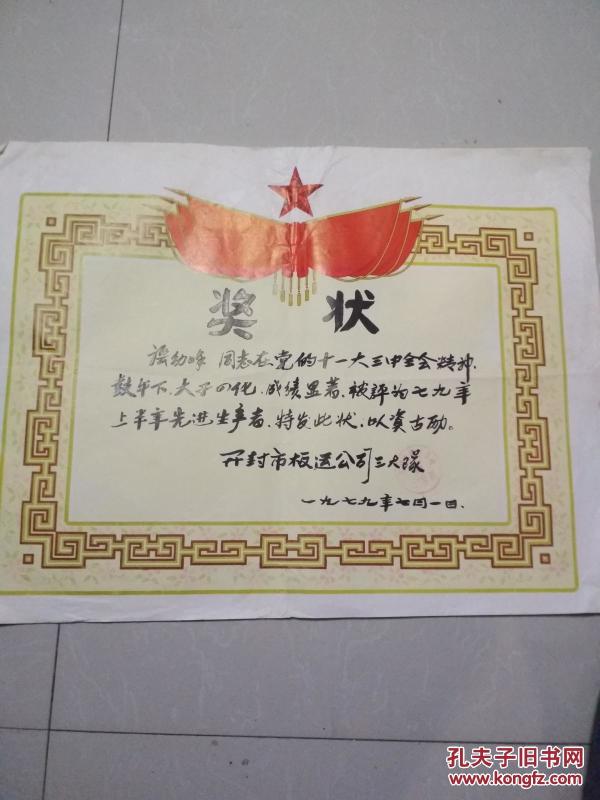 奖状
幼峰 同志在党的十一大三中全会精神、
鼓午下、大干四化、成绩显著、被評为七九年
上半年先进生产者、特发此状、以資古励。
开封市板运公司三大隊
一九七九年七月一日.
孔夫子旧书网
www.kongfz.com